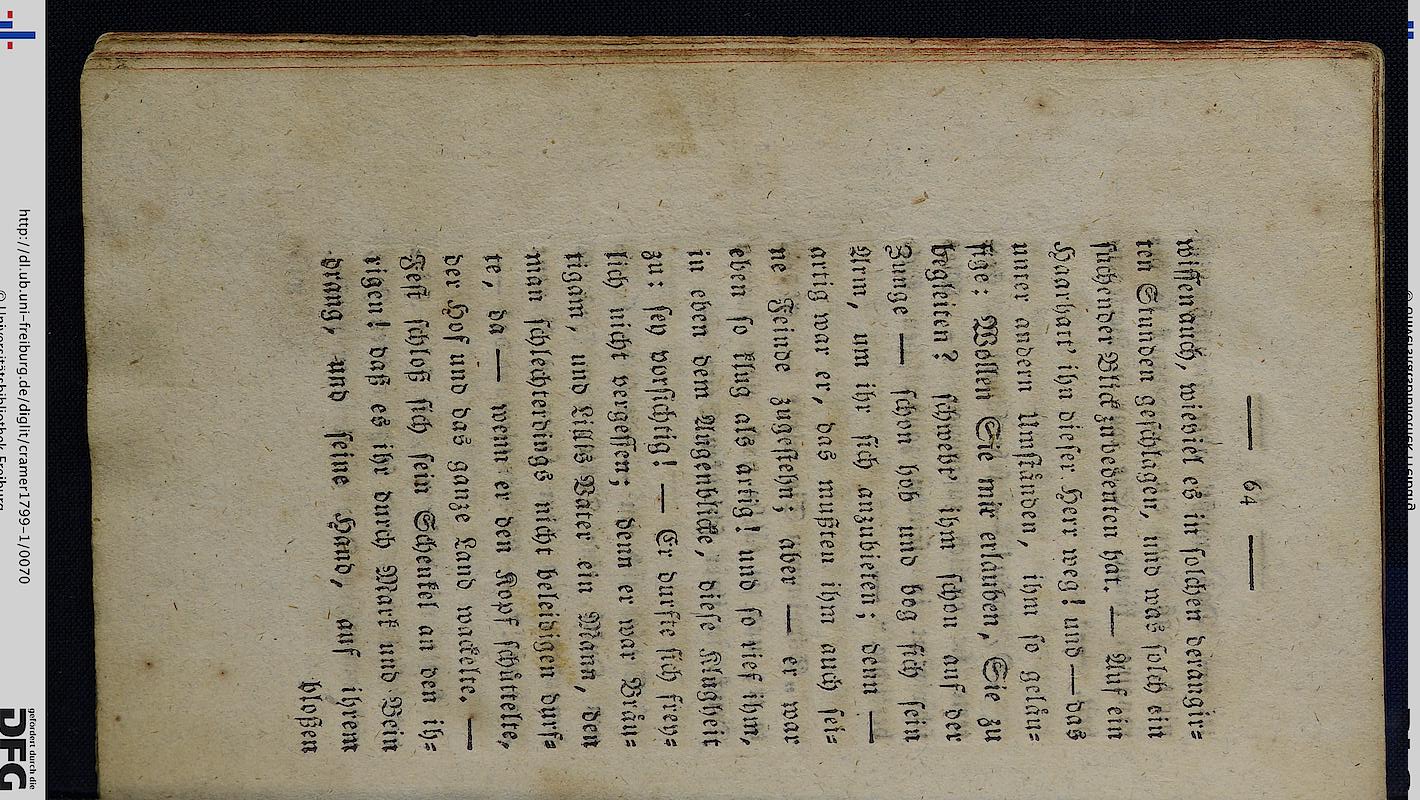 — 64 —
wissen auch, wieviel es in solchen derangir=
ten Stunden geschlagen, und was solch ein
suchender Blick zu bedeuten hat. — Auf ein
Haar hatt' ihn dieser Herr weg! und — das
unter andern Umständen, ihm so geläu=
fige: Wollen Sie mir erlauben, Sie zu
begleiten? schwebt' ihm schon auf der
Zunge — schon hob und bog sich sein
Arm, um ihr sich anzubieten; denn —
artig war er, das mußten ihm auch sei=
ne Feinde zugestehn; aber — er war
eben so klug als artig! und so rief ihm,
in eben dem Augenblicke, diese Klugheit
zu: sey vorsichtig! — Er durfte sich frey=
lich nicht vergessen; denn er war Bräu=
tigam, und Lillis Vater ein Mann, den
man schlechterdings nicht beleidigen durf=
te, da — wenn er den Kopf schüttelte,
der Hof und das ganze Land wackelte. —
Fest schloß sich sein Schenkel an den ih=
rigen! daß es ihr durch Mark und Bein
drang, und seine Hand, auf ihrem
bloßen
http://dl.ub.uni-freiburg.de/diglit/cramer1799-1/0070
© Universitätsbibliothek Freiburg
gefördert durch die
DFG